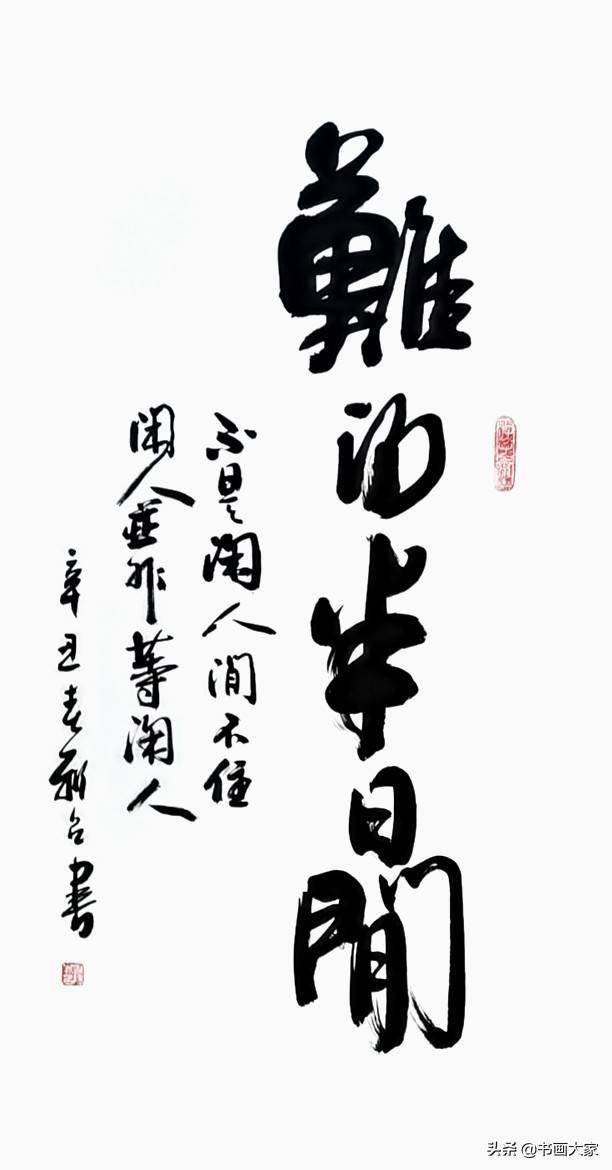 難得半日閒
不是閒人閒不住
閑人並非等閑人
辛丑春書
头条 @书画大家